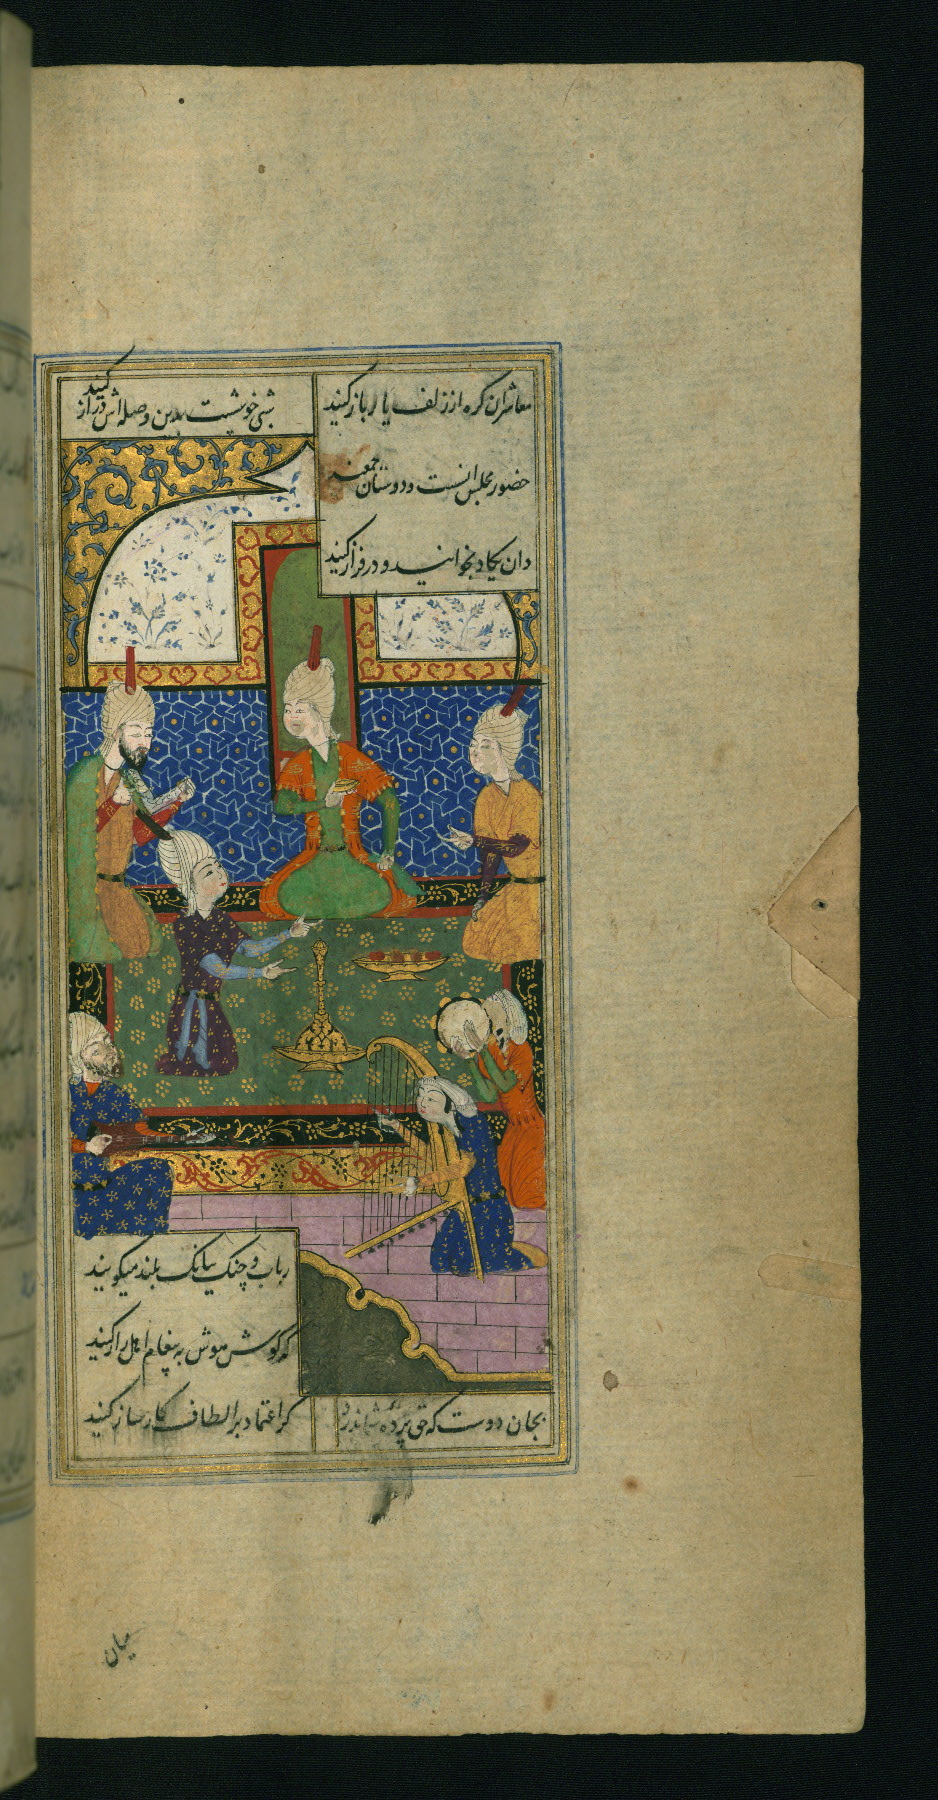 معاشران کره از زلف یار باز کنید
شبی خوشست بدین وصله اش دراز کنید
حضور مجلس انست و دوستان جمعند
وان یکاد بخوانید و در فراز کنید
رباب و چنک ببانک بلند میکویند
که کوش هوش به پیغام اهل راز کنید
بجان دوست که غم پرده شما ندرد
کر اعتماد بر الطاف کارساز کنید
میان